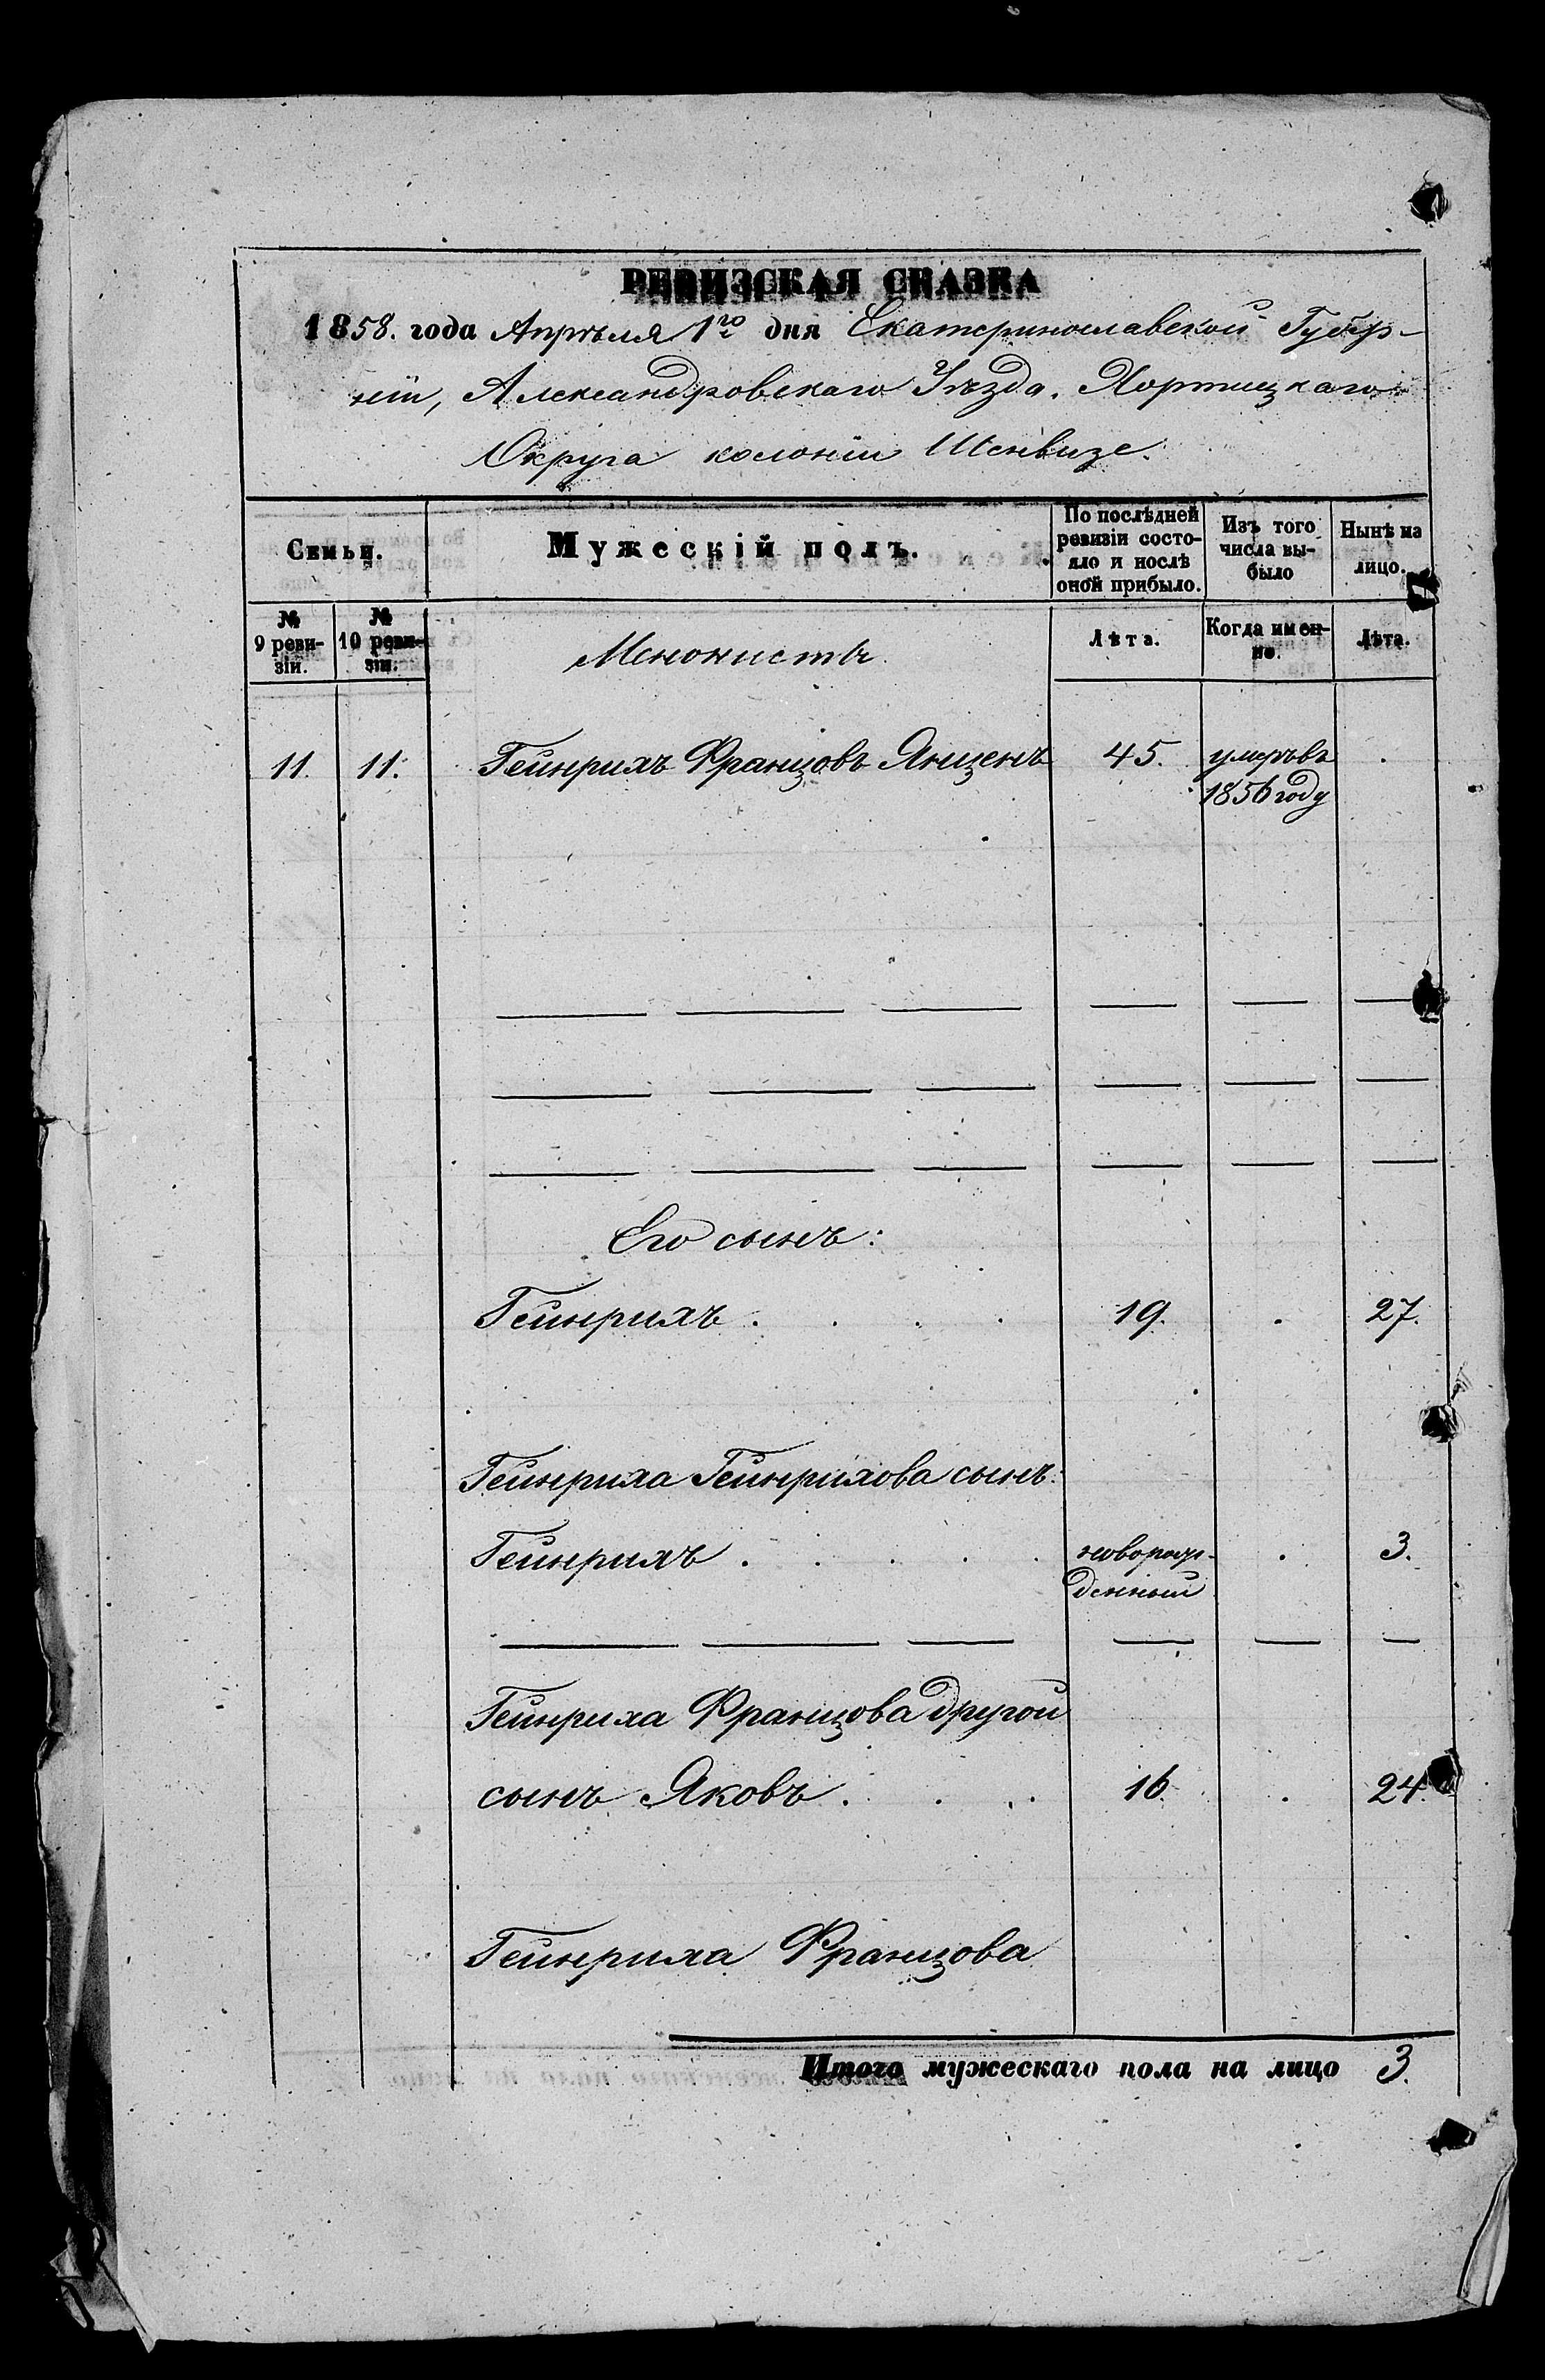 РЕВИЗСКАЯ СКАЗКА
1858. года Апрѣля 1го дня Екатеринославской Губер-
ніи, Александровскаго Уѣзда. Хортицкаго
Округа колоніи Шенвизе.
Семьи.
Мужескій полъ.
По послѣдней
ревизіи состо-
яло и послѣ
оной прибыло.
Изъ того
числа вы-
было
Нынѣ на
лицо.
№
9 реви-
зіи.
№
10 реви-
зіи.
Менонистъ
Лѣта.
Когда имен-
но.
Лѣта.
11. 11. Гейнрихъ Францовъ Янценъ 45. умеръ въ
1856 году
Его сынъ:
Гейнрихъ . . . . 19. . 27.
Гейнриха Гейнрихова сынъ:
Гейнрихъ . . . . . новорож- . 3.
денный
Гейнриха Францова другой
сынъ Яковъ . . . 16. . 24.
Гейнриха Францова
Итого мужескаго пола на лицо 3.